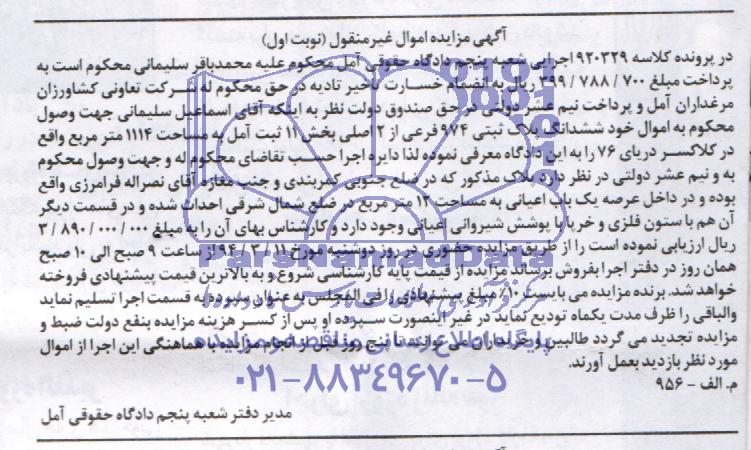 آگهی مزایده اموال غیرمنقول (نوبت اول)
در پرونده کلاسه ۹۲۰۳۲۹ اجرایی شعبه پنجم دادگاه حقوقی آمل محکوم علیه محمدباقر سلیمانی محکوم است به
پرداخت مبلغ ۳۹۹/۷۸۸/۷۰۰ ریال به انضمام خسارت تاخیر تادیه در حق محکوم له شرکت تعاونی کشاورزان
مرغداران آمل و پرداخت نیم عشر دولتی در حق صندوق دولت نظر به اینکه آقای اسماعیل سلیمانی جهت وصول
محکوم به اموال خود ششدانگ پلاک ثبتی ۹۷۴ فرعی از ۲ اصلی بخش ۱۱ ثبت آمل به مساحت ۱۱۱۴ متر مربع واقع
در کلاکسر دریای ۷۶ را به این دادگاه معرفی نموده لذا دایره اجرا حسب تقاضای محکوم له و جهت وصول محکوم
به و نیم عشر دولتی در نظر دارد پلاک مذکور که در ضلع جنوبی کمربندی و جنب مغازه آقای نصراله فرامرزی واقع
بوده و در داخل عرصه یک باب اعیانی به مساحت ۱۲ متر مربع در ضلع شمال شرقی احداث شده و در قسمت دیگر
آن هم با ستون فلزی و خرپا با پوشش شیروانی اعیانی وجود دارد و کارشناس بهای آن را به مبلغ ۳/۸۹۰/۰۰۰/۰۰۰
ریال ارزیابی نموده است را از طریق مزایده حضوری در روز دوشنبه مورخ ۹۴/۳/۱۱ از ساعت ۹ صبح الی ۱۰ صبح
همان روز در دفتر اجرا بفروش برساند مزایده از قیمت پایه کارشناسی شروع و به بالاترین قیمت پیشنهادی فروخته
خواهد شد. برنده مزایده می بایست ۱۰٪ مبلغ پیشنهادی را فی المجلس به عنوان سپرده به قسمت اجرا تسلیم نماید
والباقی را ظرف مدت یکماه تودیع نماید در غیر اینصورت سپرده او پس از کسر هزینه مزایده بنفع دولت ضبط و
مزایده تجدید می گردد طالبین و خریداران می توانند تا پنج روز قبل از انجام مزایده با هماهنگی این اجرا از اموال
مورد نظر بازدید بعمل آورند.
م. الف - ۹۵۶
مدیر دفتر شعبه پنجم دادگاه حقوقی آمل
ParsNamadData
پایگاه اطلاع رسانی مناقصه و مزایده
۰۲۱-۸۸۳۴۹۶۷۰-۵